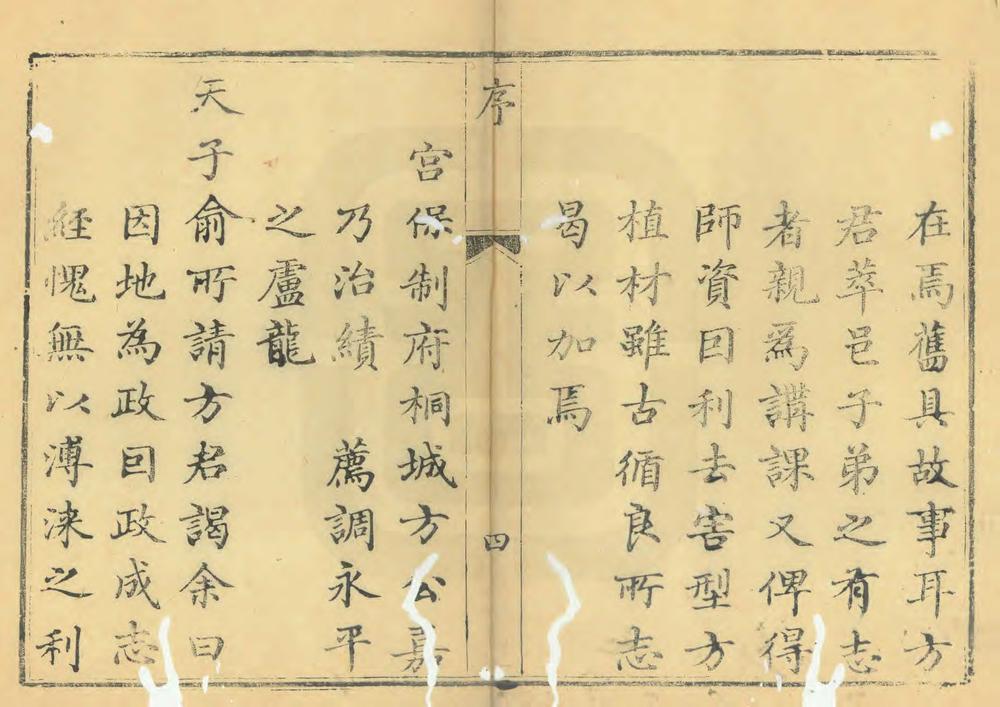 在焉舊具故事耳方
君萃邑子弟之有志
者親爲講課又俾得
師資回利去害型方
植材雖古循良所志
曷以加焉
序
四
宮保制府桐城方公嘉
乃治績 薦調永平
之盧龍
天子俞所請方君謁余曰
因地為政回政成志
経愧無以溥涞之利